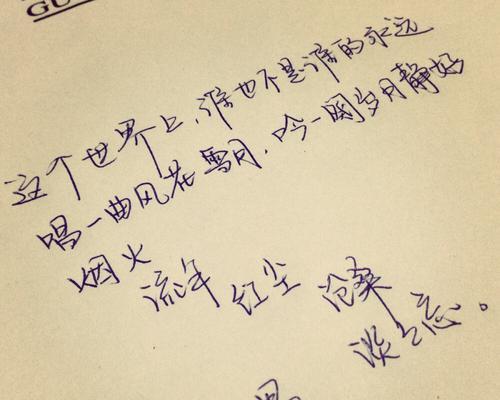 GU
这个世界上,谁也不是谁的永远
唱一曲风花雪月,吟一阕岁月静好
烟火 流年 红尘 沧桑
淡淡忘。